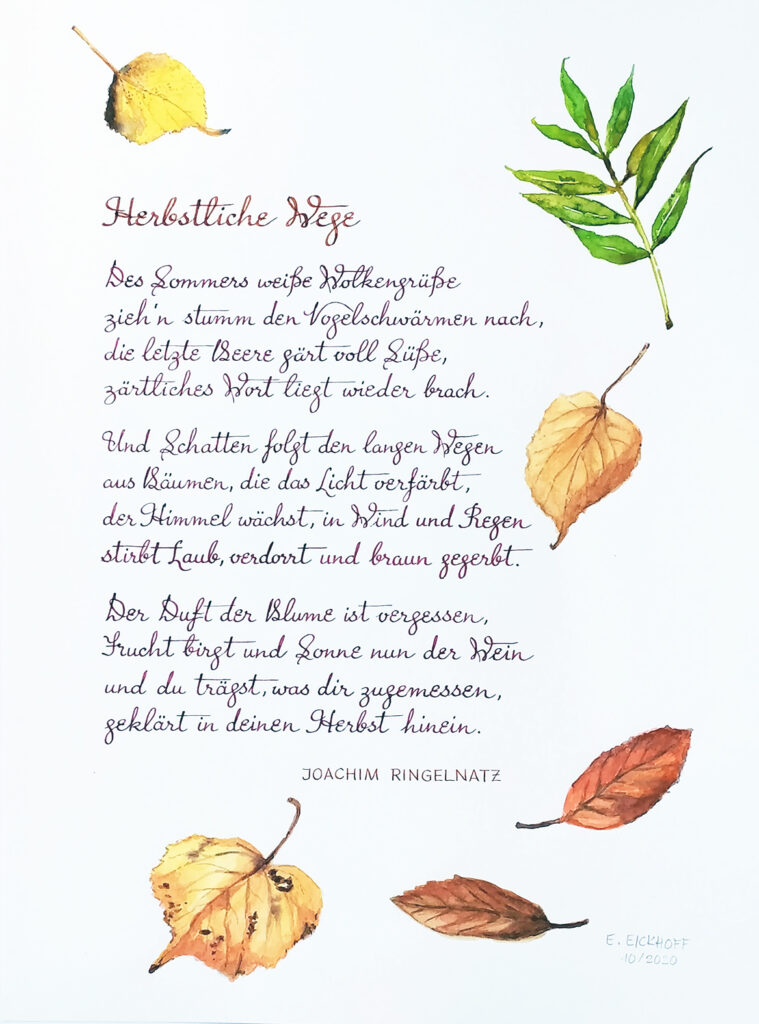 Herbstliche Wege
Des Sommers weiße Wolkengrüße
zieh'n stumm den Vogelschwärmen nach,
die letzte Beere gärt voll Süße,
zärtliches Wort liegt wieder brach.
Und Schatten folgt den langen Wegen
aus Bäumen, die das Licht verfärbt,
der Himmel wächst, in Wind und Regen
stirbt Laub, verdorrt und braun gegerbt.
Der Duft der Blume ist vergessen,
Frucht birgt und Sonne nun der Wein
und du trägst, was dir zugemessen,
geklärt in deinen Herbst hinein.
JOACHIM RINGELNATZ
E. EICKHOFF
10/2020